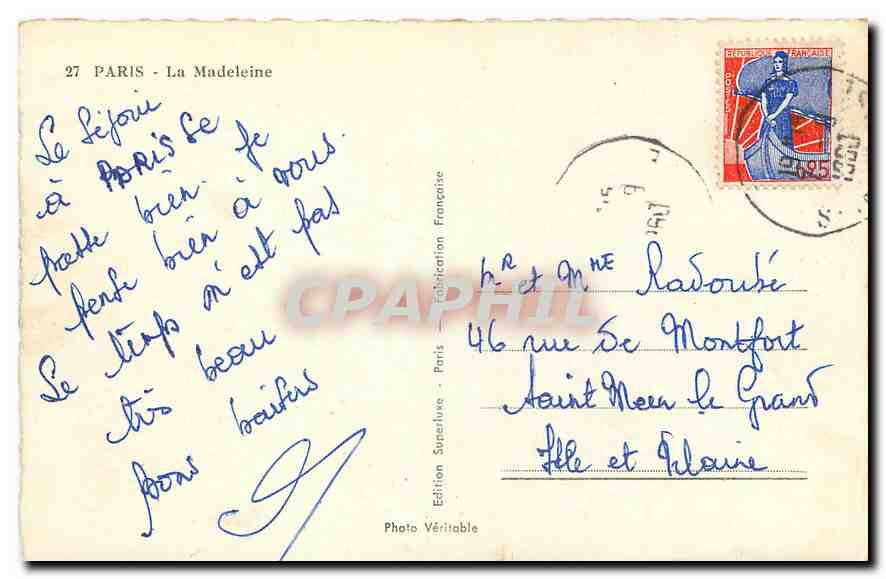 27 PARIS - La Madeleine
Le Séjour
à PARIS Se
passe bien. Je
pense bien à vous.
Le temps n'est pas
très beau
bons baisers
Edition Superluxe - Paris - Fabrication Française
Photo Véritable
RÉPUBLIQUE FRANÇAISE
POSTES
0,25
Mr et Mme Radoubé
46 rue De Montfort
Saint Meen le Grand
Ille et Vilaine
CPAPHIL